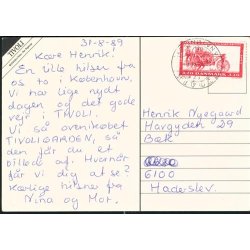 31-8-89
TIVOLI
Kære Henrik!
En lille hilsen fra
os to i København.
Vi har lige nydt
dagen, og det gode
vejr i TIVOLI.
Vi så ovenikøbet
TIVOLIGARDEN, så
den får du et
billede af. Hvornår
får vi dig at se?
Kærlige hilsner fra
Nina og Mor.
DANMARK 3.20
Henrik Nyegaard
Hargyden 29
Bæk
6100
Haderslev.